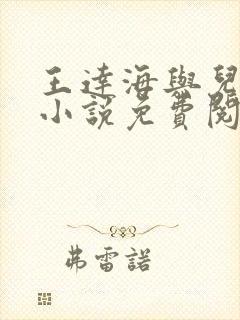 王達海與兒
小說免費閱
弗雷諾